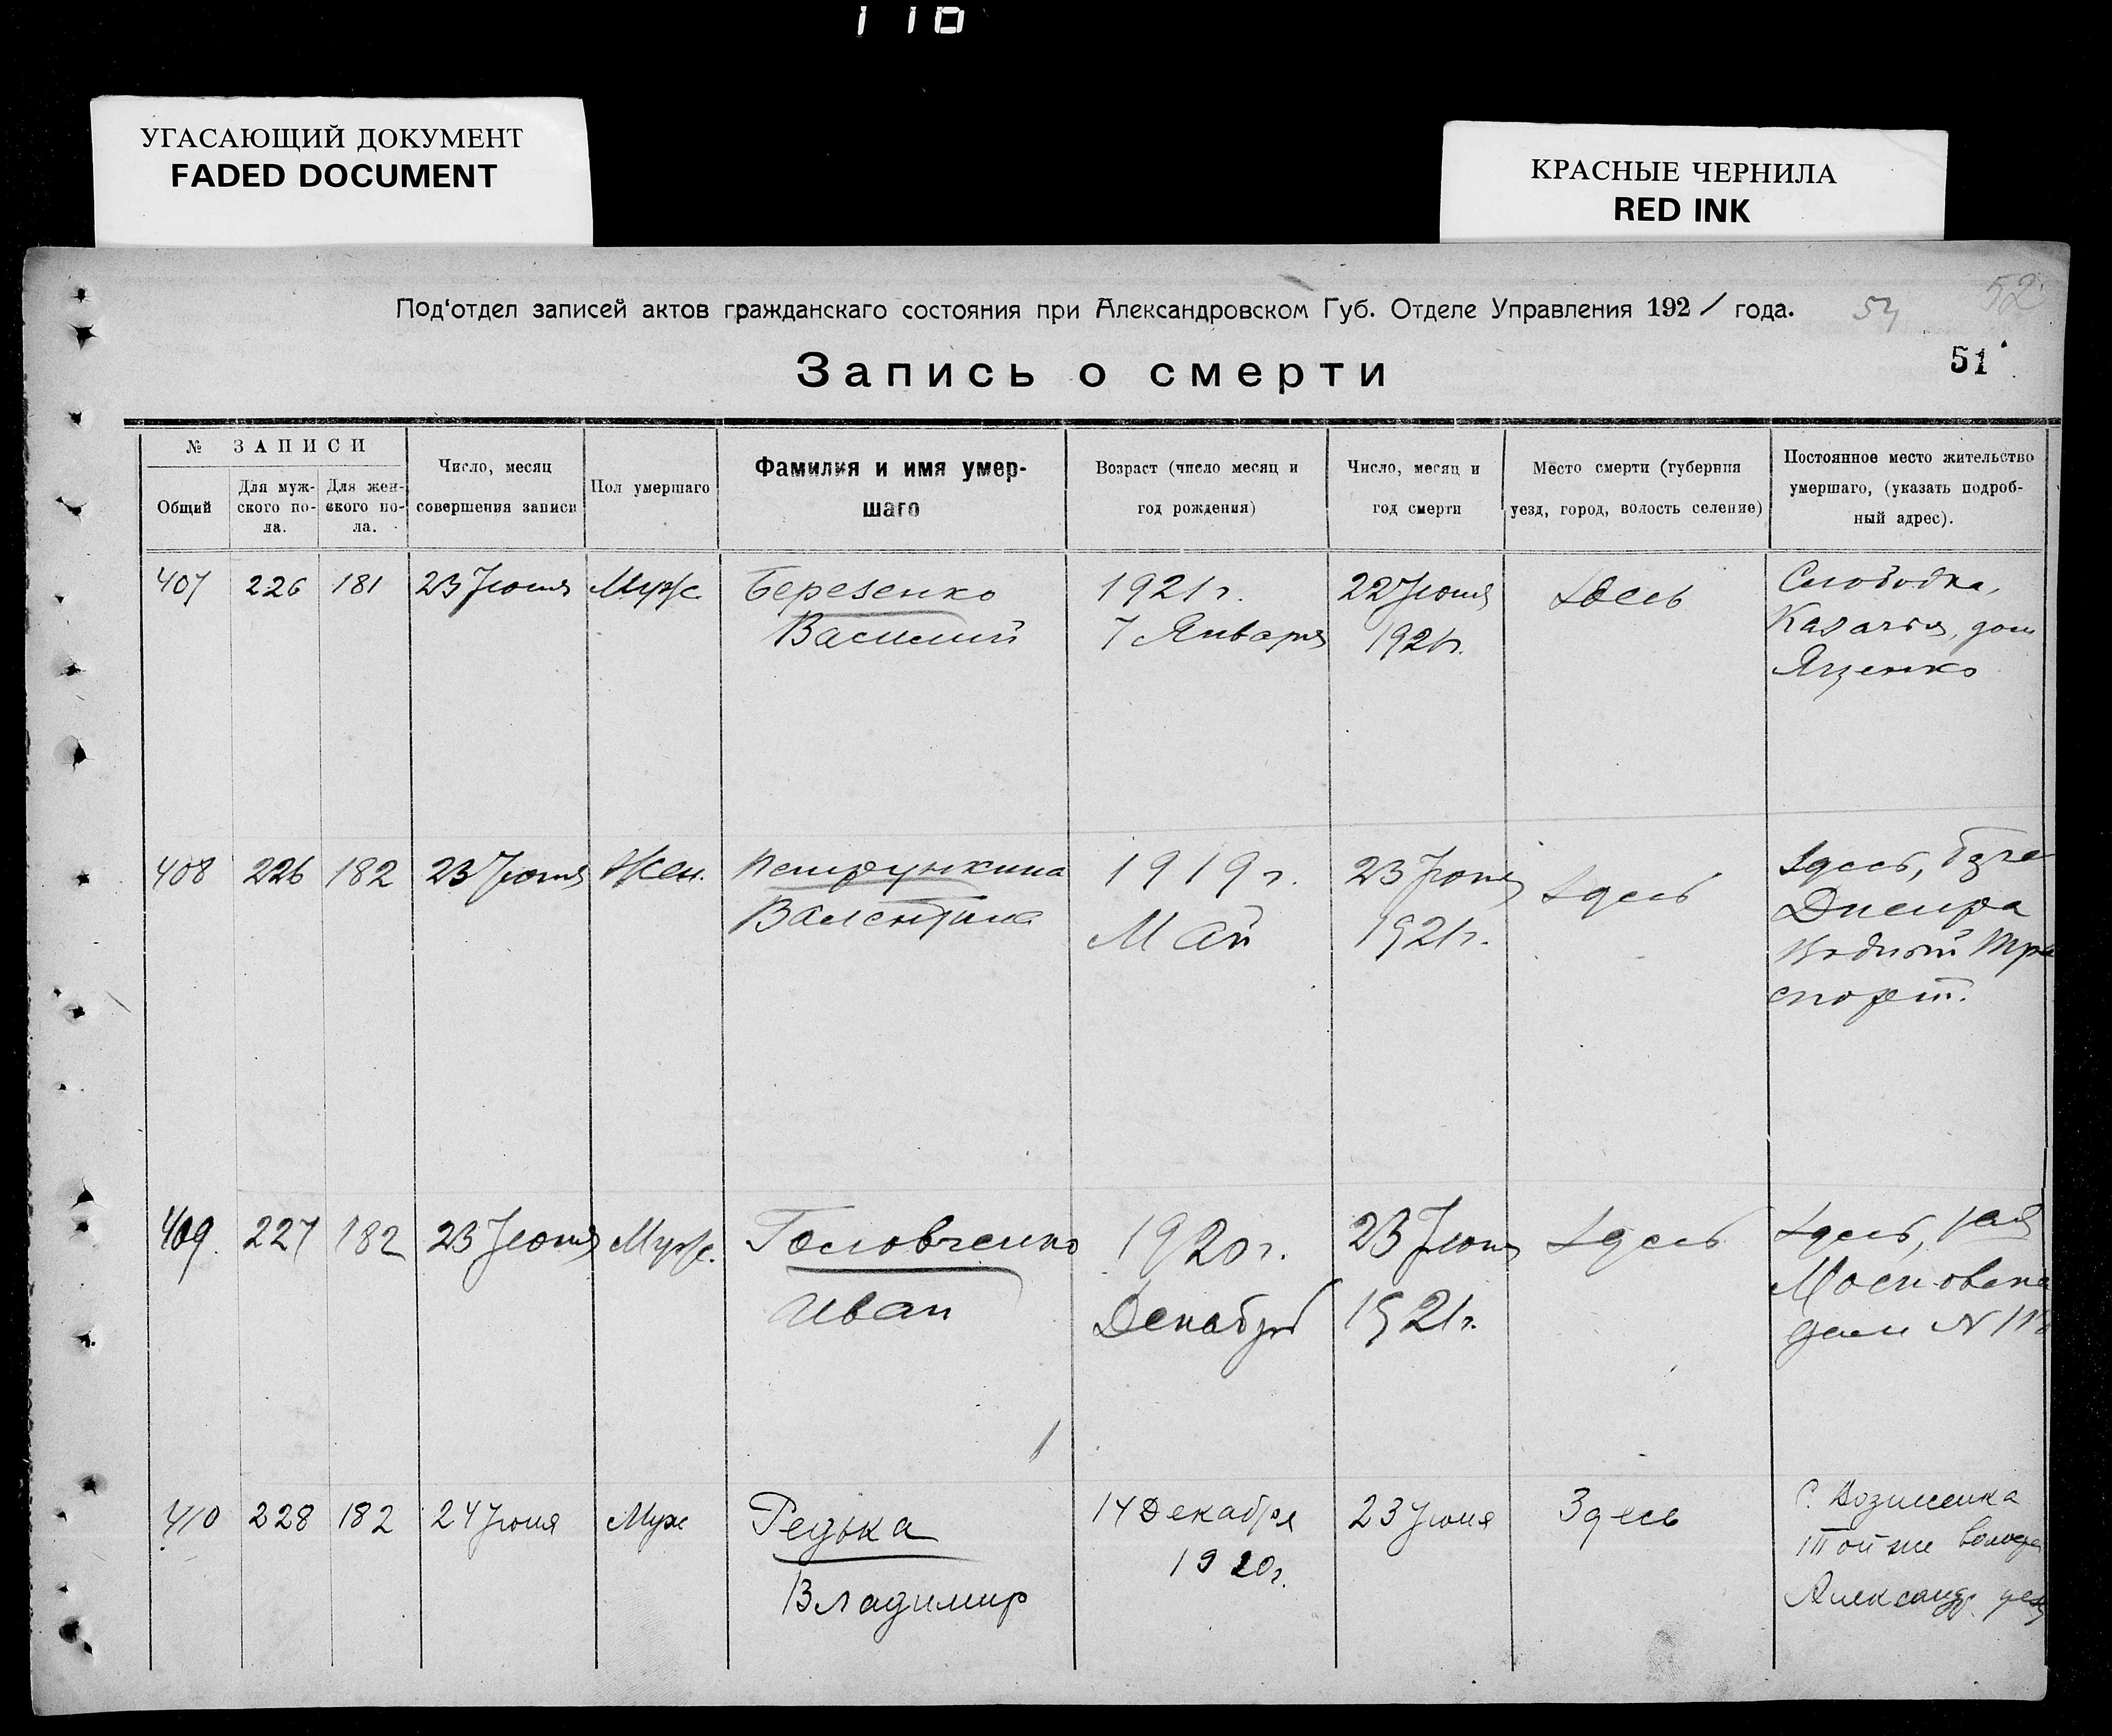 110
УГАСАЮЩИЙ ДОКУМЕНТ
FADED DOCUMENT
КРАСНЫЕ ЧЕРНИЛА
RED INK
Под'отдел записей актов гражданскаго состояния при Александровском Губ. Отделе Управления 1921 года.
52
51
Запись о смерти
№ ЗАПИСИ
Общий
Для муж-
ского по-
ла.
Для жен-
ского по-
ла.
Число, месяц
совершения записи
Пол умершаго
Фамилия и имя умер-
шаго
Возраст (число месяц и
год рождения)
Число, месяц и
год смерти
Место смерти (губерния
уезд, город, волость селение)
Постоянное место жительство
умершаго, (указать подроб-
ный адрес).
407 226 181 23 Июня Муж
Березенко
Василий
1921 г.
7 Января
22 Июня
1921 г.
Здесь
Слободка,
Казачья, дом
Яценко
408 226 182 23 Июня Жен.
Валентина
1919 г.
Май
23 Июня
1921 г.
Здесь
Здесь,
Днепра
Водный Тра
спорт.
409. 227 182 23 Июня Муж.
Головченко
Иван
1920 г.
Декабря
23 Июня
1921 г.
Здесь
Здесь,
Московская
дом №
410 228 182 24 Июня Муж
Редька
Владимир
14 Декабря
1920 г.
23 Июня
Здесь
С. Вознесенка
Той же волости
Александр. уезд